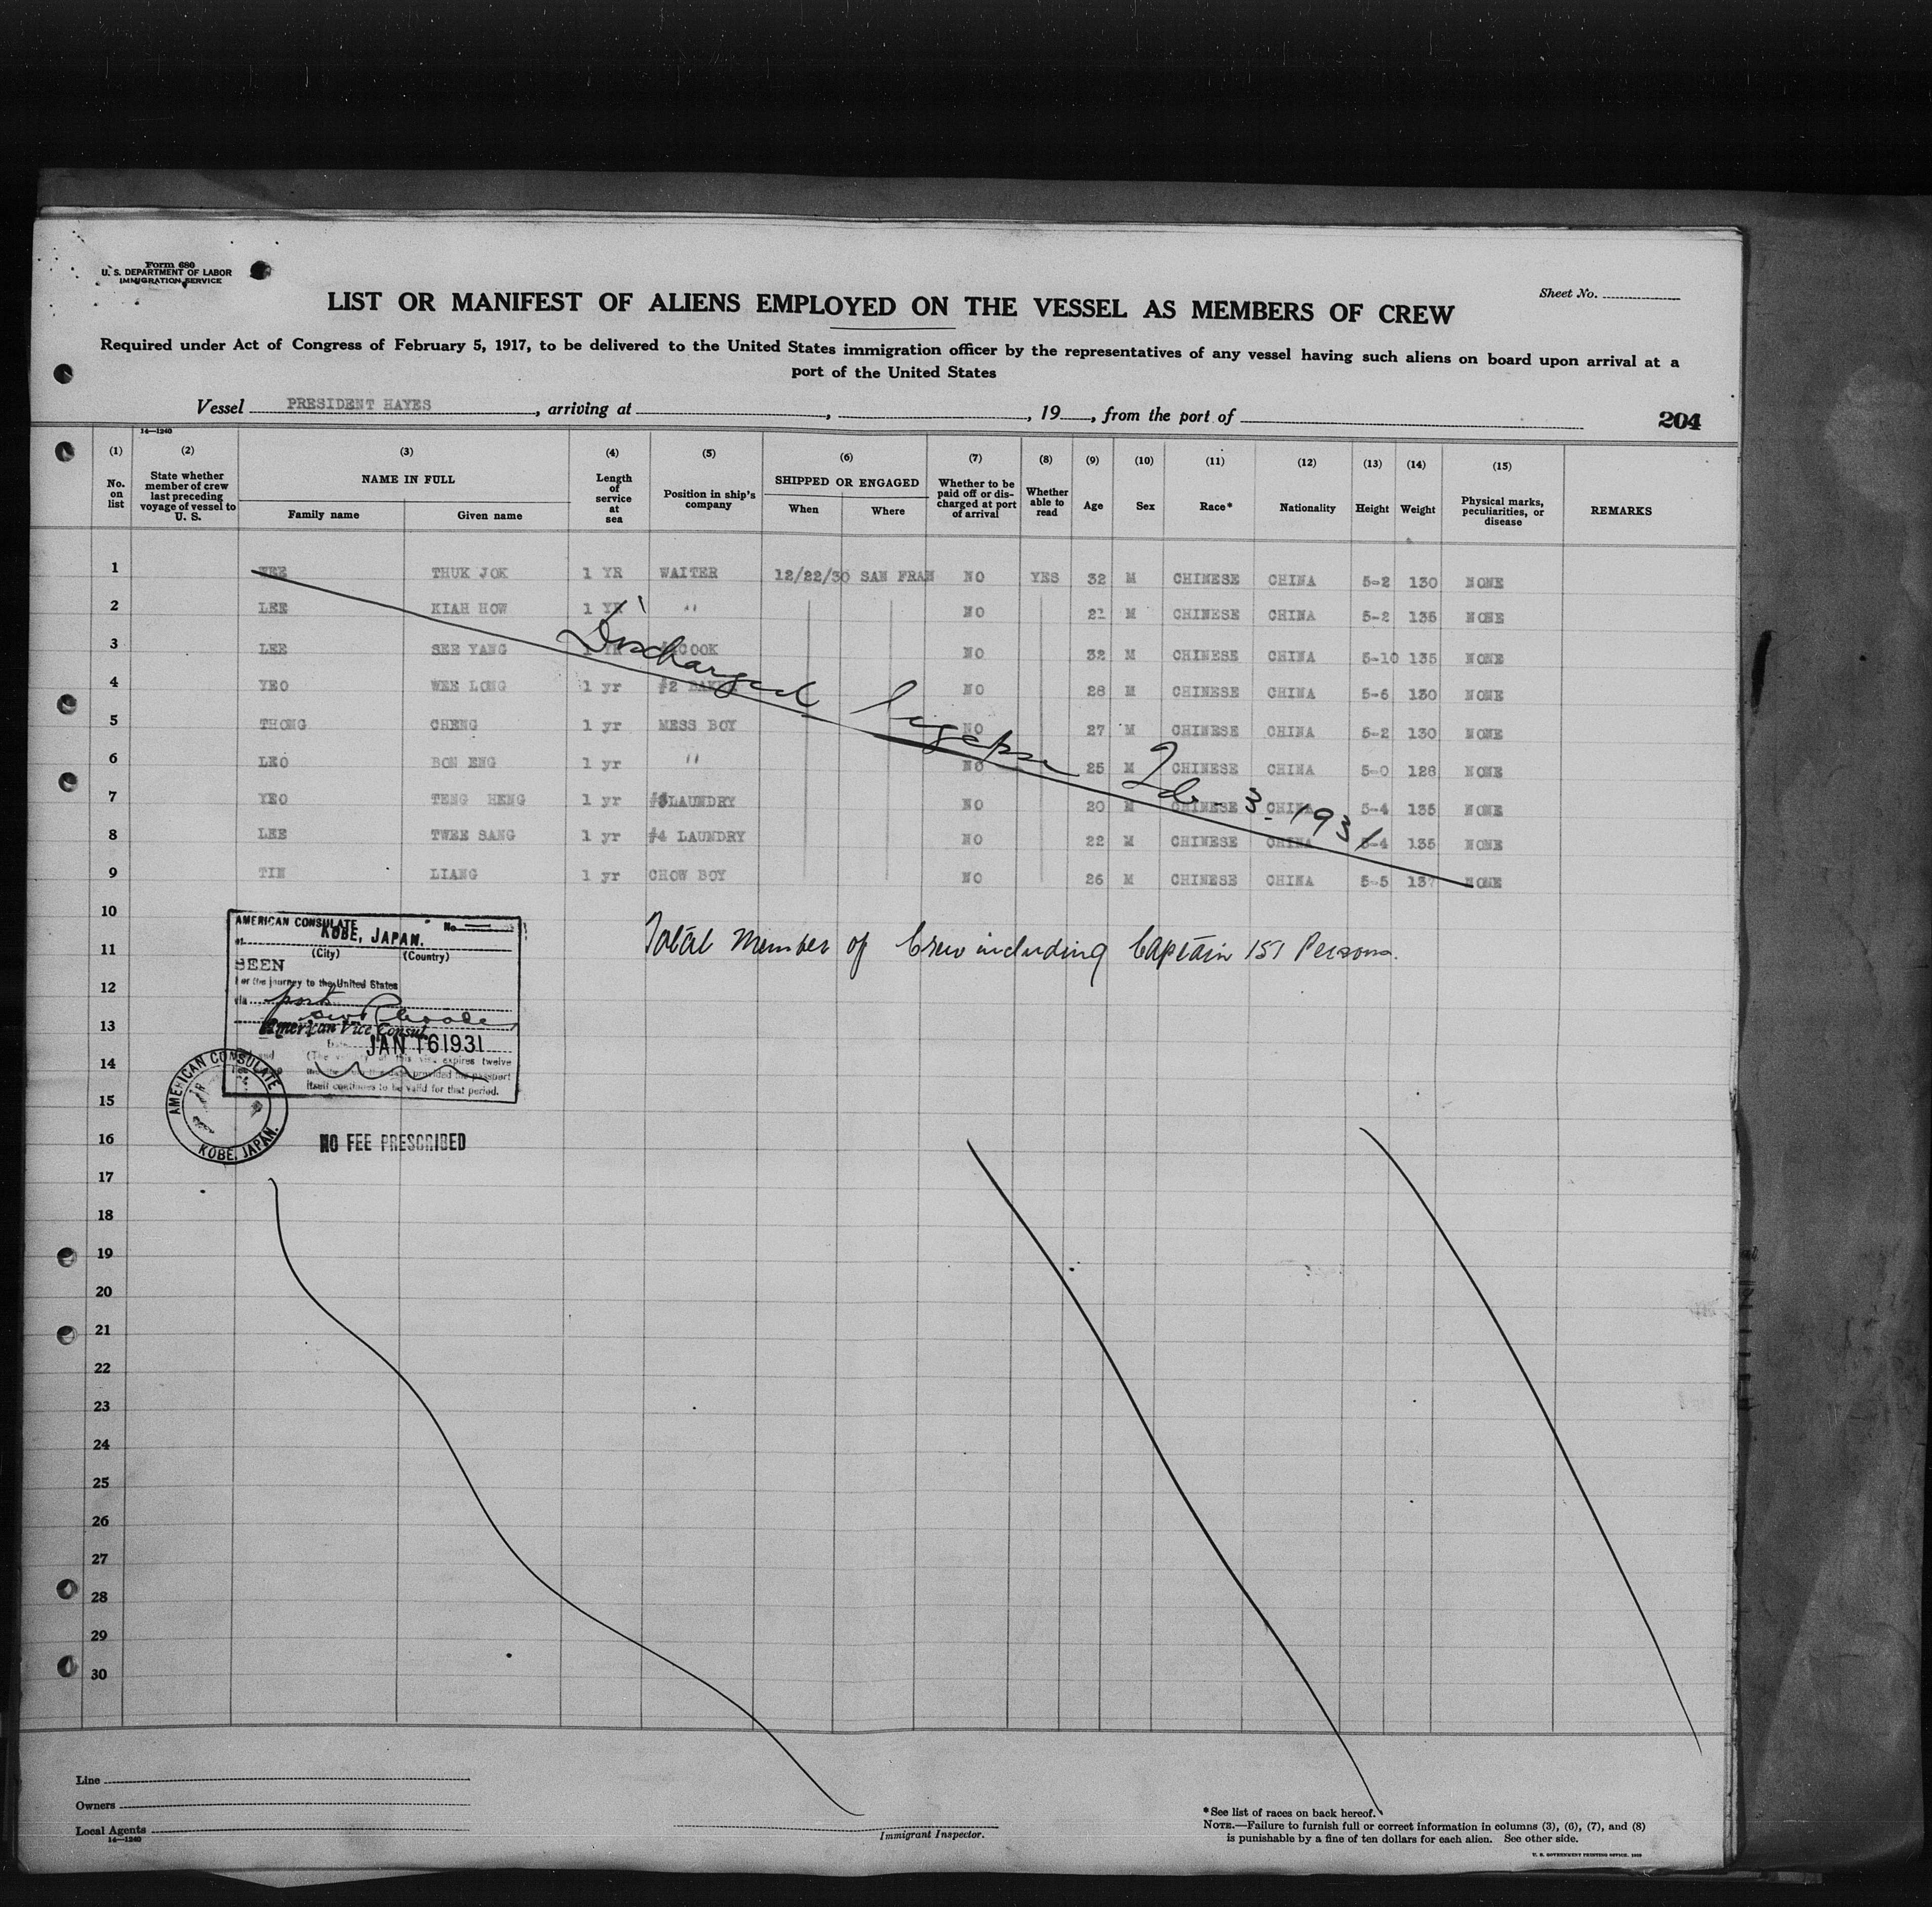 Form 680
U. S. DEPARTMENT OF LABOR
IMMIGRATION SERVICE
Sheet No.
LIST OR MANIFEST OF ALIENS EMPLOYED ON THE VESSEL AS MEMBERS OF CREW
Required under Act of Congress of February 5, 1917, to be delivered to the United States immigration officer by the representatives of any vessel having such aliens on board upon arrival at a
port of the United States
Vessel PRESIDENT HAYES, arriving at , , 19 , from the port of
204
14—1240
(1) (2) (3) (4) (5) (6) (7) (8) (9) (10) (11) (12) (13) (14) (15)
No. on list
State whether member of crew last preceding voyage of vessel to U. S.
NAME IN FULL
Family name Given name
Length of service at sea
Position in ship's company
SHIPPED OR ENGAGED
When Where
Whether to be paid off or discharged at port of arrival
Whether able to read
Age Sex Race* Nationality Height Weight
Physical marks, peculiarities, or disease
REMARKS
1 THUK JOK 1 YR WAITER 12/22/30 SAN FRAN NO YES 32 M CHINESE CHINA 5-2 130 NONE
2 LEE KIAH HOW 1 YR " NO 21 M CHINESE CHINA 5-2 135 NONE
3 LEE SEE YANG 1 YR COOK NO 32 M CHINESE CHINA 5-10 135 NONE
4 YEO WEE LONG 1 yr #2 BAKER NO 28 M CHINESE CHINA 5-6 130 NONE
5 THONG CHENG 1 yr MESS BOY NO 27 M CHINESE CHINA 5-2 130 NONE
6 LEO BON ENG 1 yr " NO 25 M CHINESE CHINA 5-0 128 NONE
7 YEO TENG HENG 1 yr LAUNDRY NO 20 M CHINESE CHINA 5-4 135 NONE
8 LEE TWEE SANG 1 yr #4 LAUNDRY NO 22 M CHINESE CHINA 5-4 135 NONE
9 TIN LIANG 1 yr CHOW BOY NO 26 M CHINESE CHINA 5-5 137 NONE
Discharged Feb-3-1931
10
11 Total Member of Crew including Captain 151 Persons.
12
13
14
15
16
17
18
19
20
21
22
23
24
25
26
27
28
29
30
AMERICAN CONSULATE No
at KOBE, JAPAN.
(City) (Country)
SEEN
For the journey to the United States
via ports
American Vice Consul
Date JAN 16 1931
expires twelve
provided the passport
itself continues to be valid for that period.
AMERICAN CONSULATE
KOBE, JAPAN.
NO FEE PRESCRIBED
Line
Owners
Local Agents
14—1240
Immigrant Inspector.
*See list of races on back hereof.
NOTE.—Failure to furnish full or correct information in columns (3), (6), (7), and (8)
is punishable by a fine of ten dollars for each alien. See other side.